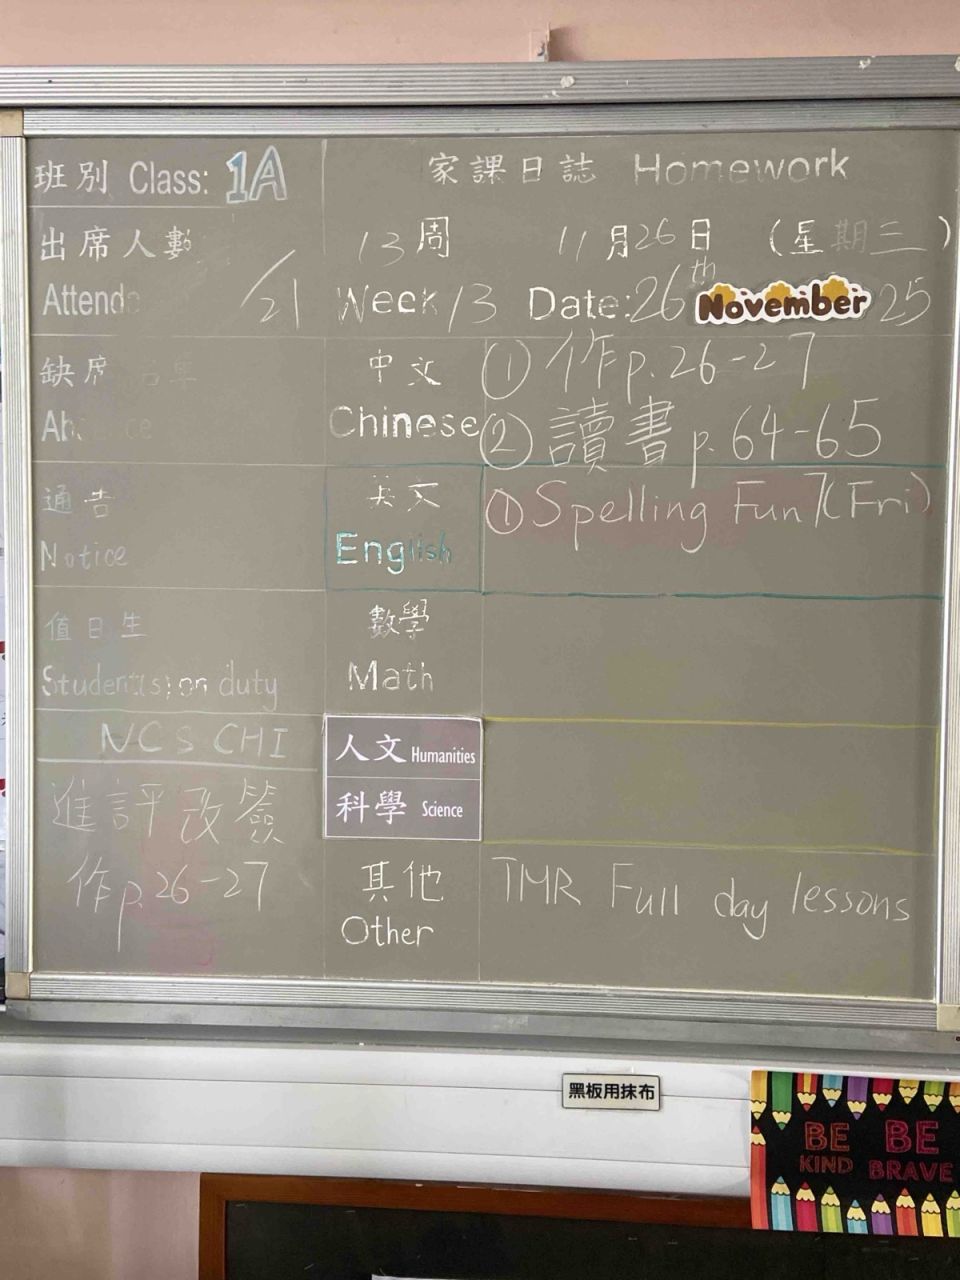 班別 Class: 1A
家課日誌 Homework
出席人數
13周 11月26日 (星期三)
Attend /21
Week 13 Date: 26th November 25
缺席
中文 ① 作p.26-27
Chinese ② 讀書 p.64-65
通告
英文 ① Spelling Fun 7 (Fri)
Notice
English
值日生
數學
Student(s) on duty
Math
NCS CHI
人文 Humanities
進評改簽
科學 Science
作p.26-27
其他 TMR Full day lessons
Other
黑板用抹布
BE KIND
BE BRAVE